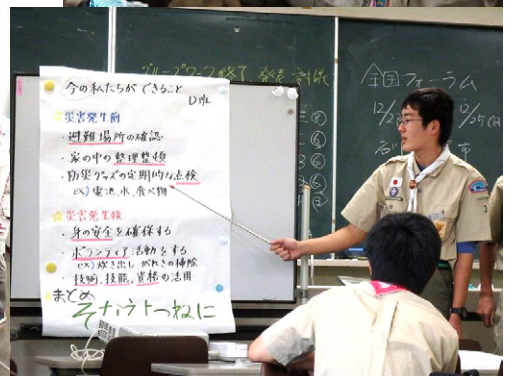 今の私たちができること
D班
災害発生前
・避難場所の確認
・家の中の整理整頓
・防災グッズの定期的な点検
ex) 電池、水、食べ物
災害発生後
・身の安全を確保する
・ボランティア活動をする
ex) 炊き出し がれきの掃除
・技術、技能、資格の活用
まとめ
そなえよつねに
グループワーク終了 発表・討議
全国フォーラム
12/2
12/25(
市